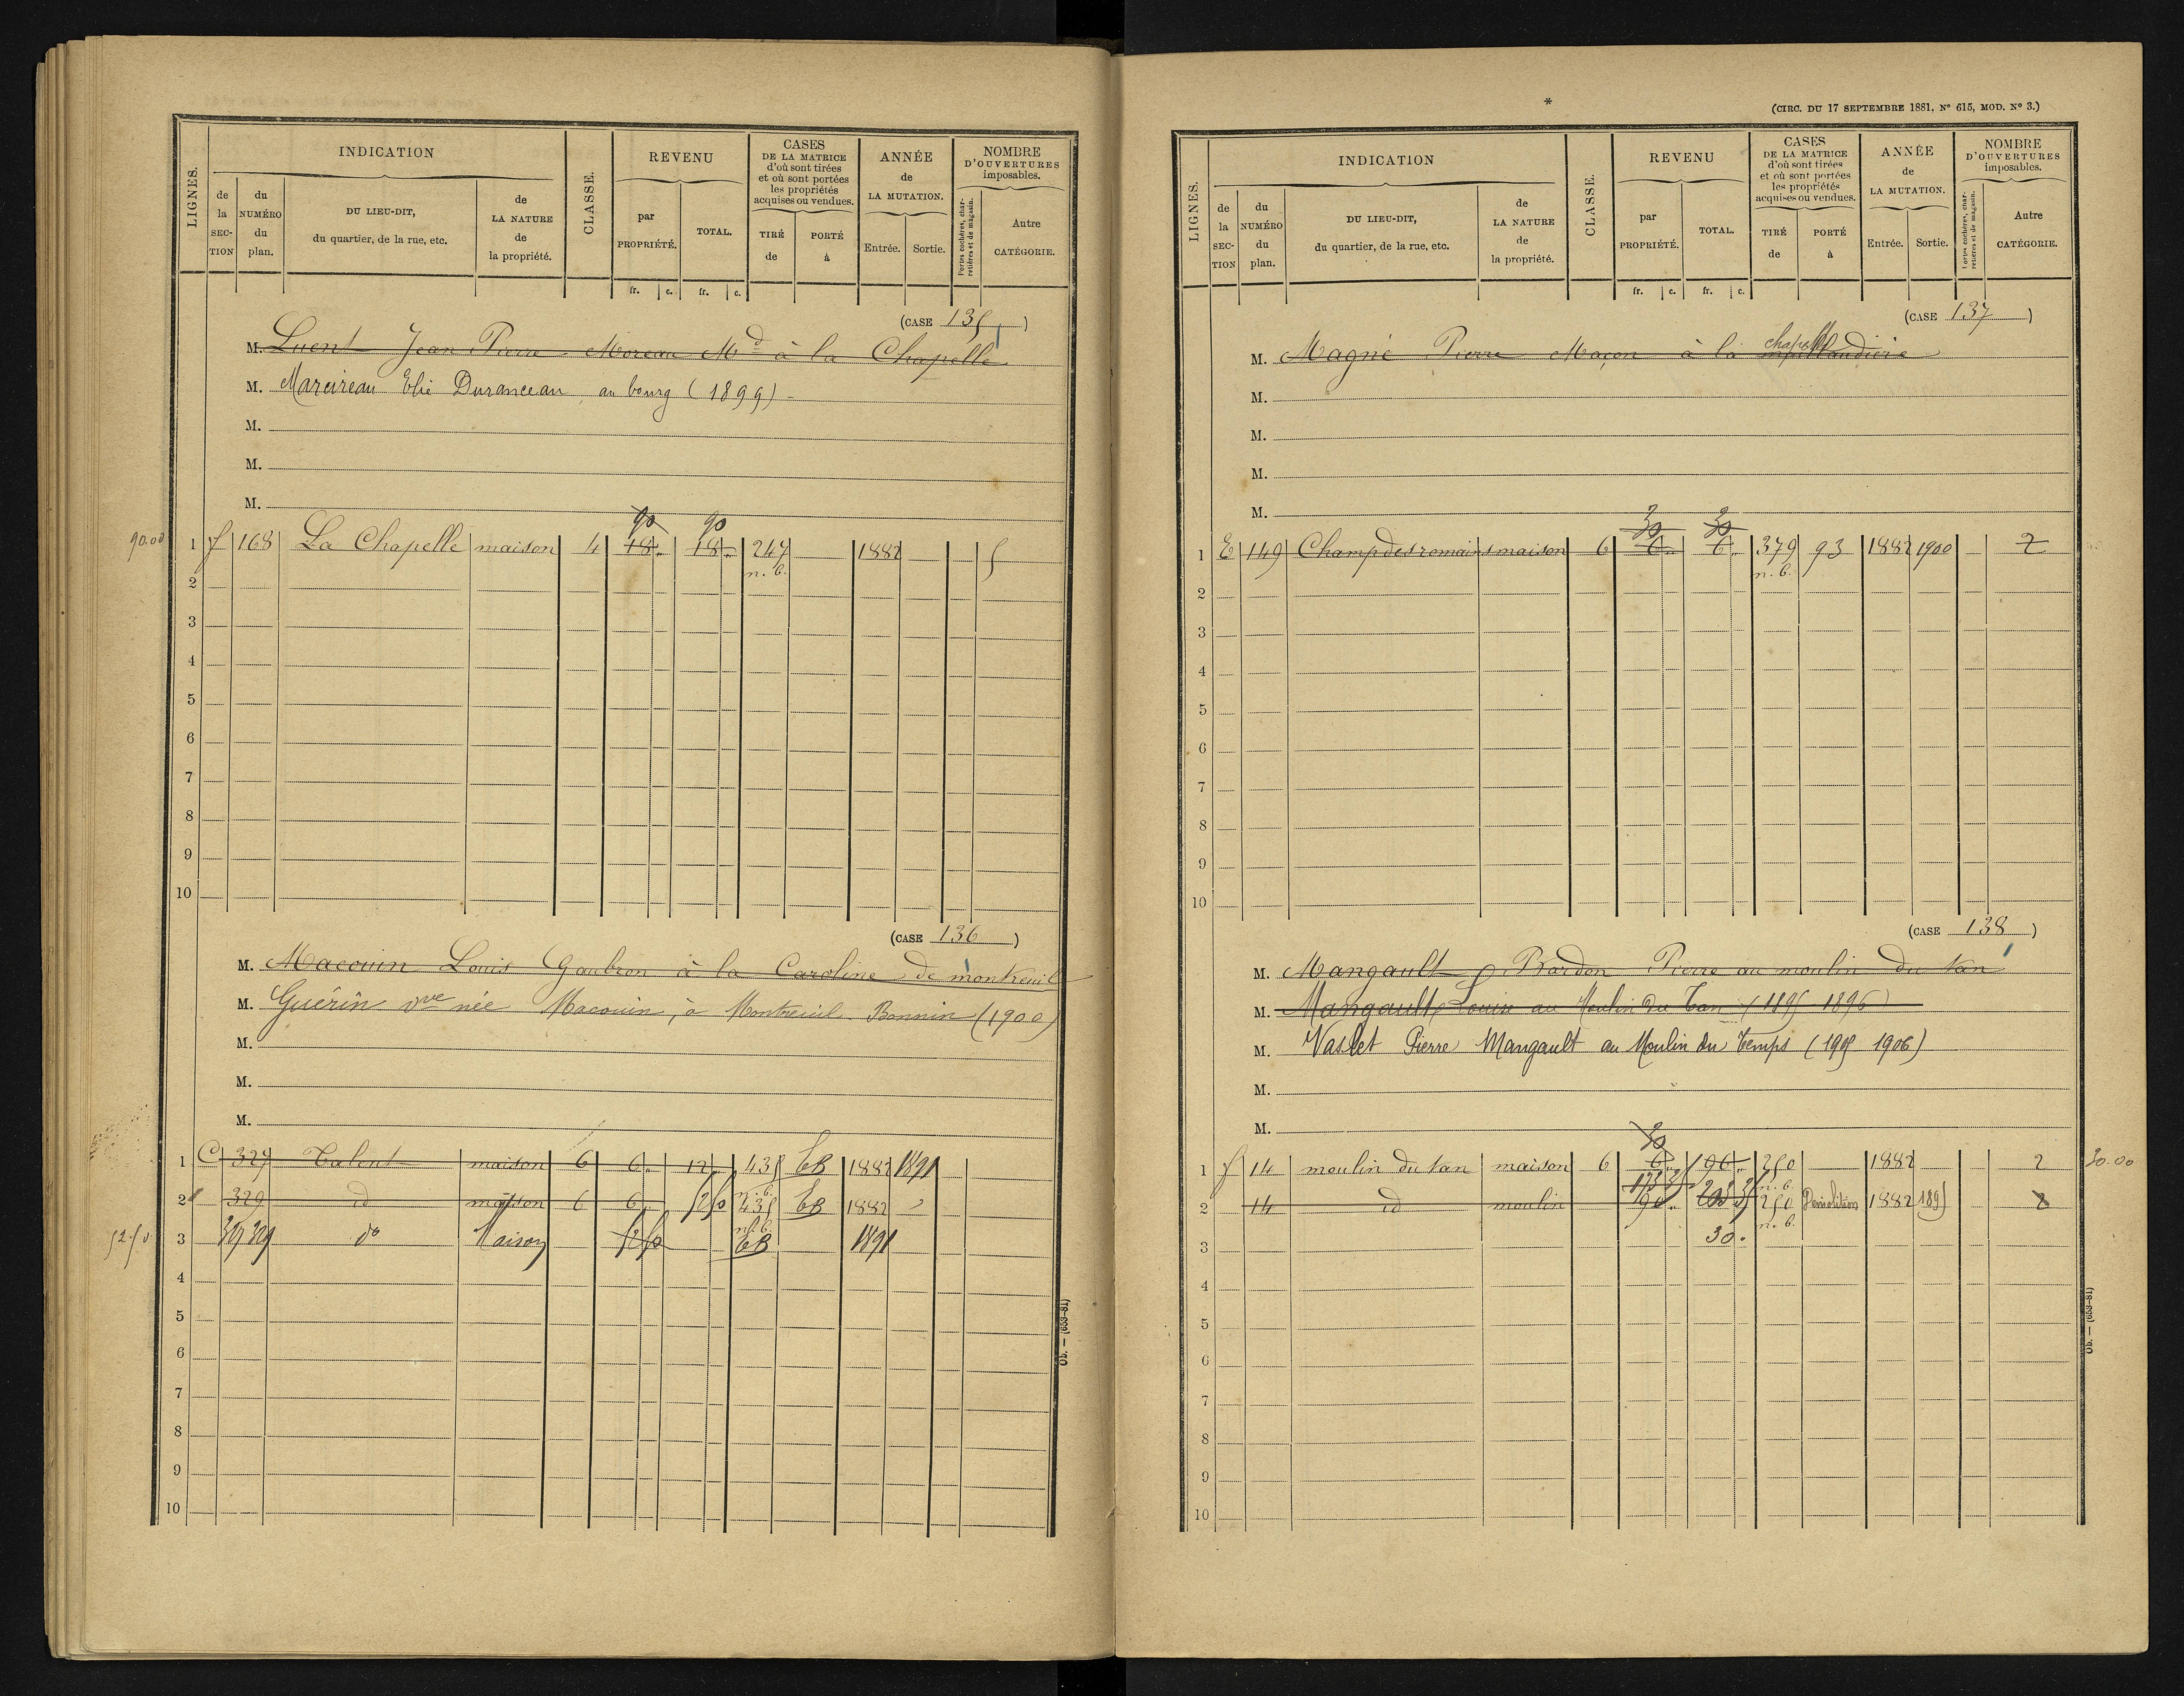 LIGNES.
INDICATION
de la SECTION
du NUMÉRO du plan.
DU LIEU-DIT, du quartier, de la rue, etc.
de LA NATURE de la propriété.
CLASSE.
REVENU
par PROPRIÉTÉ.
TOTAL.
fr. c. fr. c.
CASES DE LA MATRICE d'où sont tirées et où sont portées les propriétés acquises ou vendues.
TIRÉ de
PORTÉ à
ANNÉE de LA MUTATION.
Entrée. Sortie.
NOMBRE D'OUVERTURES imposables.
Portes cochères, charretières et de magasin.
Autre CATÉGORIE.
(CASE 135)
M. Luent Jean Pierre Moreau Md à la Chapelle
M. Marcireau Elie Duranceau, au bourg (1899)
M.
M.
M.
90 90
90.00 1 f 168 La Chapelle maison 4 18 18 247 1882 5
n. b.
2
3
4
5
6
7
8
9
10
(CASE 136)
M. Macouin Louis Gaubron à la Caroline de montreuil
M. Guérin vve née Macouin, à Montreuil Bonnin (1900)
M.
M.
M.
1 C 327 Talent maison 6 6 12 435 1882 1891
n. b.
2 329 id maison 6 6 52 50 435 1882
n. b.
52.50 3 327 329 do Maison 52 50 1891
4
5
6
7
8
9
10
Ob. — (653-81)
*
(CIRC. DU 17 SEPTEMBRE 1881, N° 615, MOD. N° 3.)
LIGNES.
INDICATION
de la SECTION
du NUMÉRO du plan.
DU LIEU-DIT, du quartier, de la rue, etc.
de LA NATURE de la propriété.
CLASSE.
REVENU
par PROPRIÉTÉ.
TOTAL.
fr. c. fr. c.
CASES DE LA MATRICE d'où sont tirées et où sont portées les propriétés acquises ou vendues.
TIRÉ de
PORTÉ à
ANNÉE de LA MUTATION.
Entrée. Sortie.
NOMBRE D'OUVERTURES imposables.
Portes cochères, charretières et de magasin.
Autre CATÉGORIE.
(CASE 137)
chapelle
M. Magné Pierre Maçon à la
M.
M.
M.
M.
30 30
1 E 149 Champ des romains maison 6 6 6 379 93 1882 1900 2
n. b.
2
3
4
5
6
7
8
9
10
(CASE 138)
M. Mangault Bardon Pierre au moulin du tan
M. Mangault Louise au Moulin du Tan (1895 1896)
M. Vaslet Pierre Mangault au Moulin du Temps (1905 1906)
M.
M.
30
1 f 14 moulin du tan maison 6 6 196 250 1882 2 30.00
n. b.
2 14 id moulin 190 250 Démolition 1882 1895
n. b.
3 30
4
5
6
7
8
9
10
Ob. — (653-81)